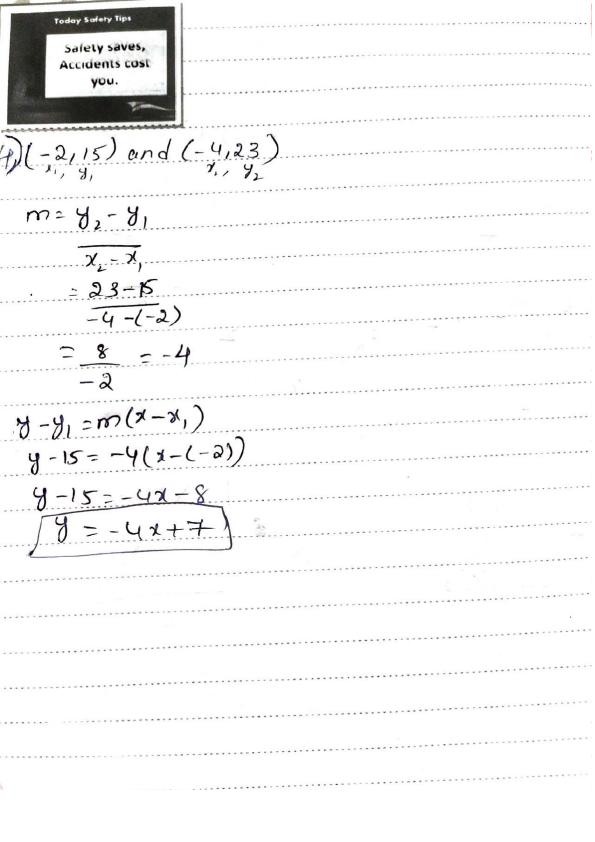 Today Safety Tips
Safety saves,
Accidents cost
you.
4) (-2, 15) and (-4, 23)
x₁, y₁ x₂, y₂
m = y₂ - y₁
x₂ - x₁
= 23 - 15
-4 - (-2)
= 8 = -4
-2
y - y₁ = m(x - x₁)
y - 15 = -4(x - (-2))
y - 15 = -4x - 8
y = -4x + 7